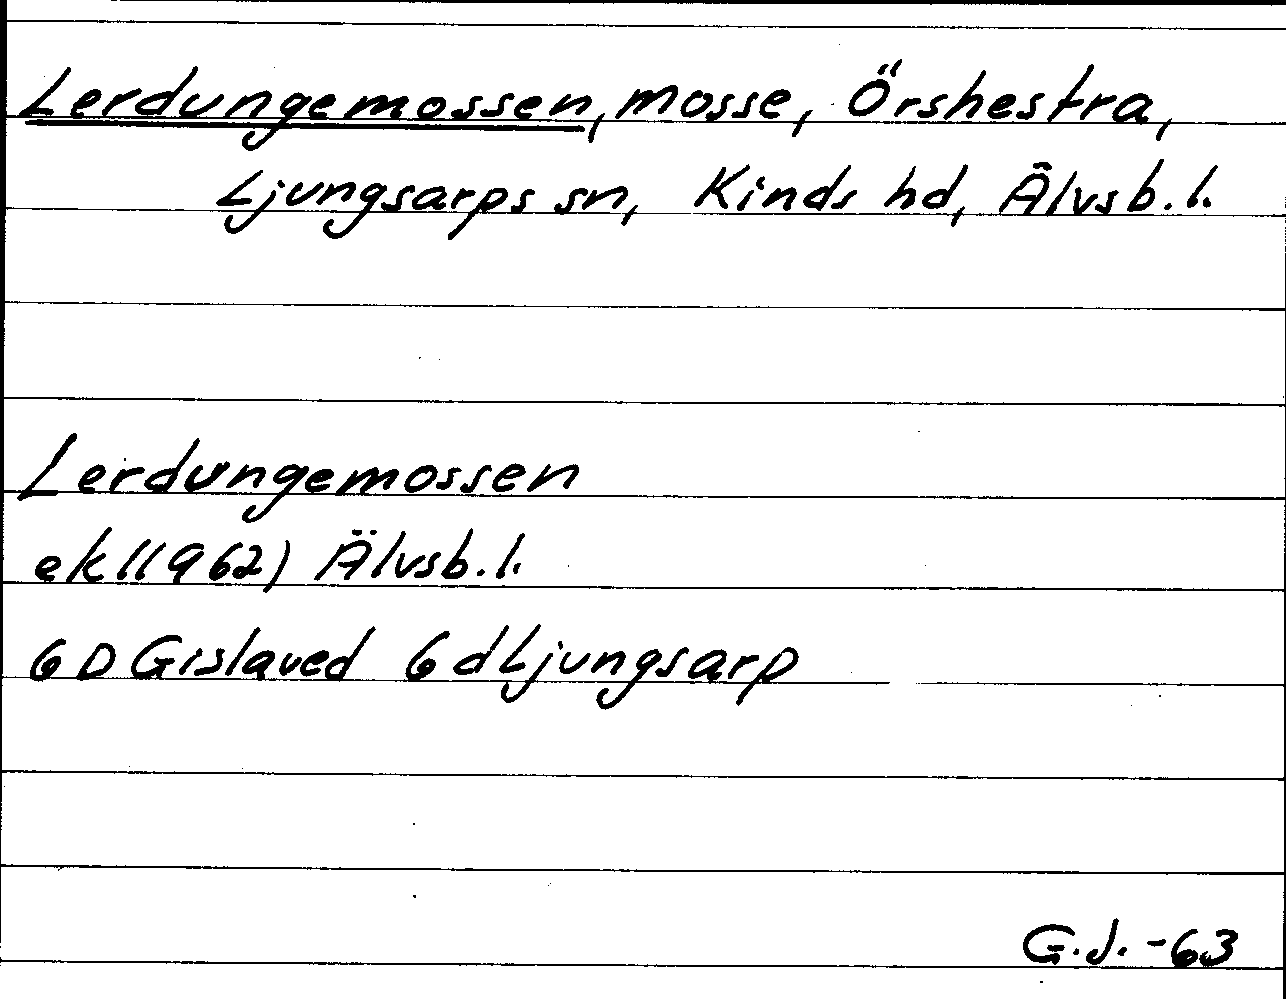 Lerdungemossen, mosse, Örshestra,
Ljungsarps sn, Kinds hd, Älvsb. l.
Lerdungemossen
ek (1962) Älvsb. l.
6 D Gislaved 6 d Ljungsarp
G.J. -63